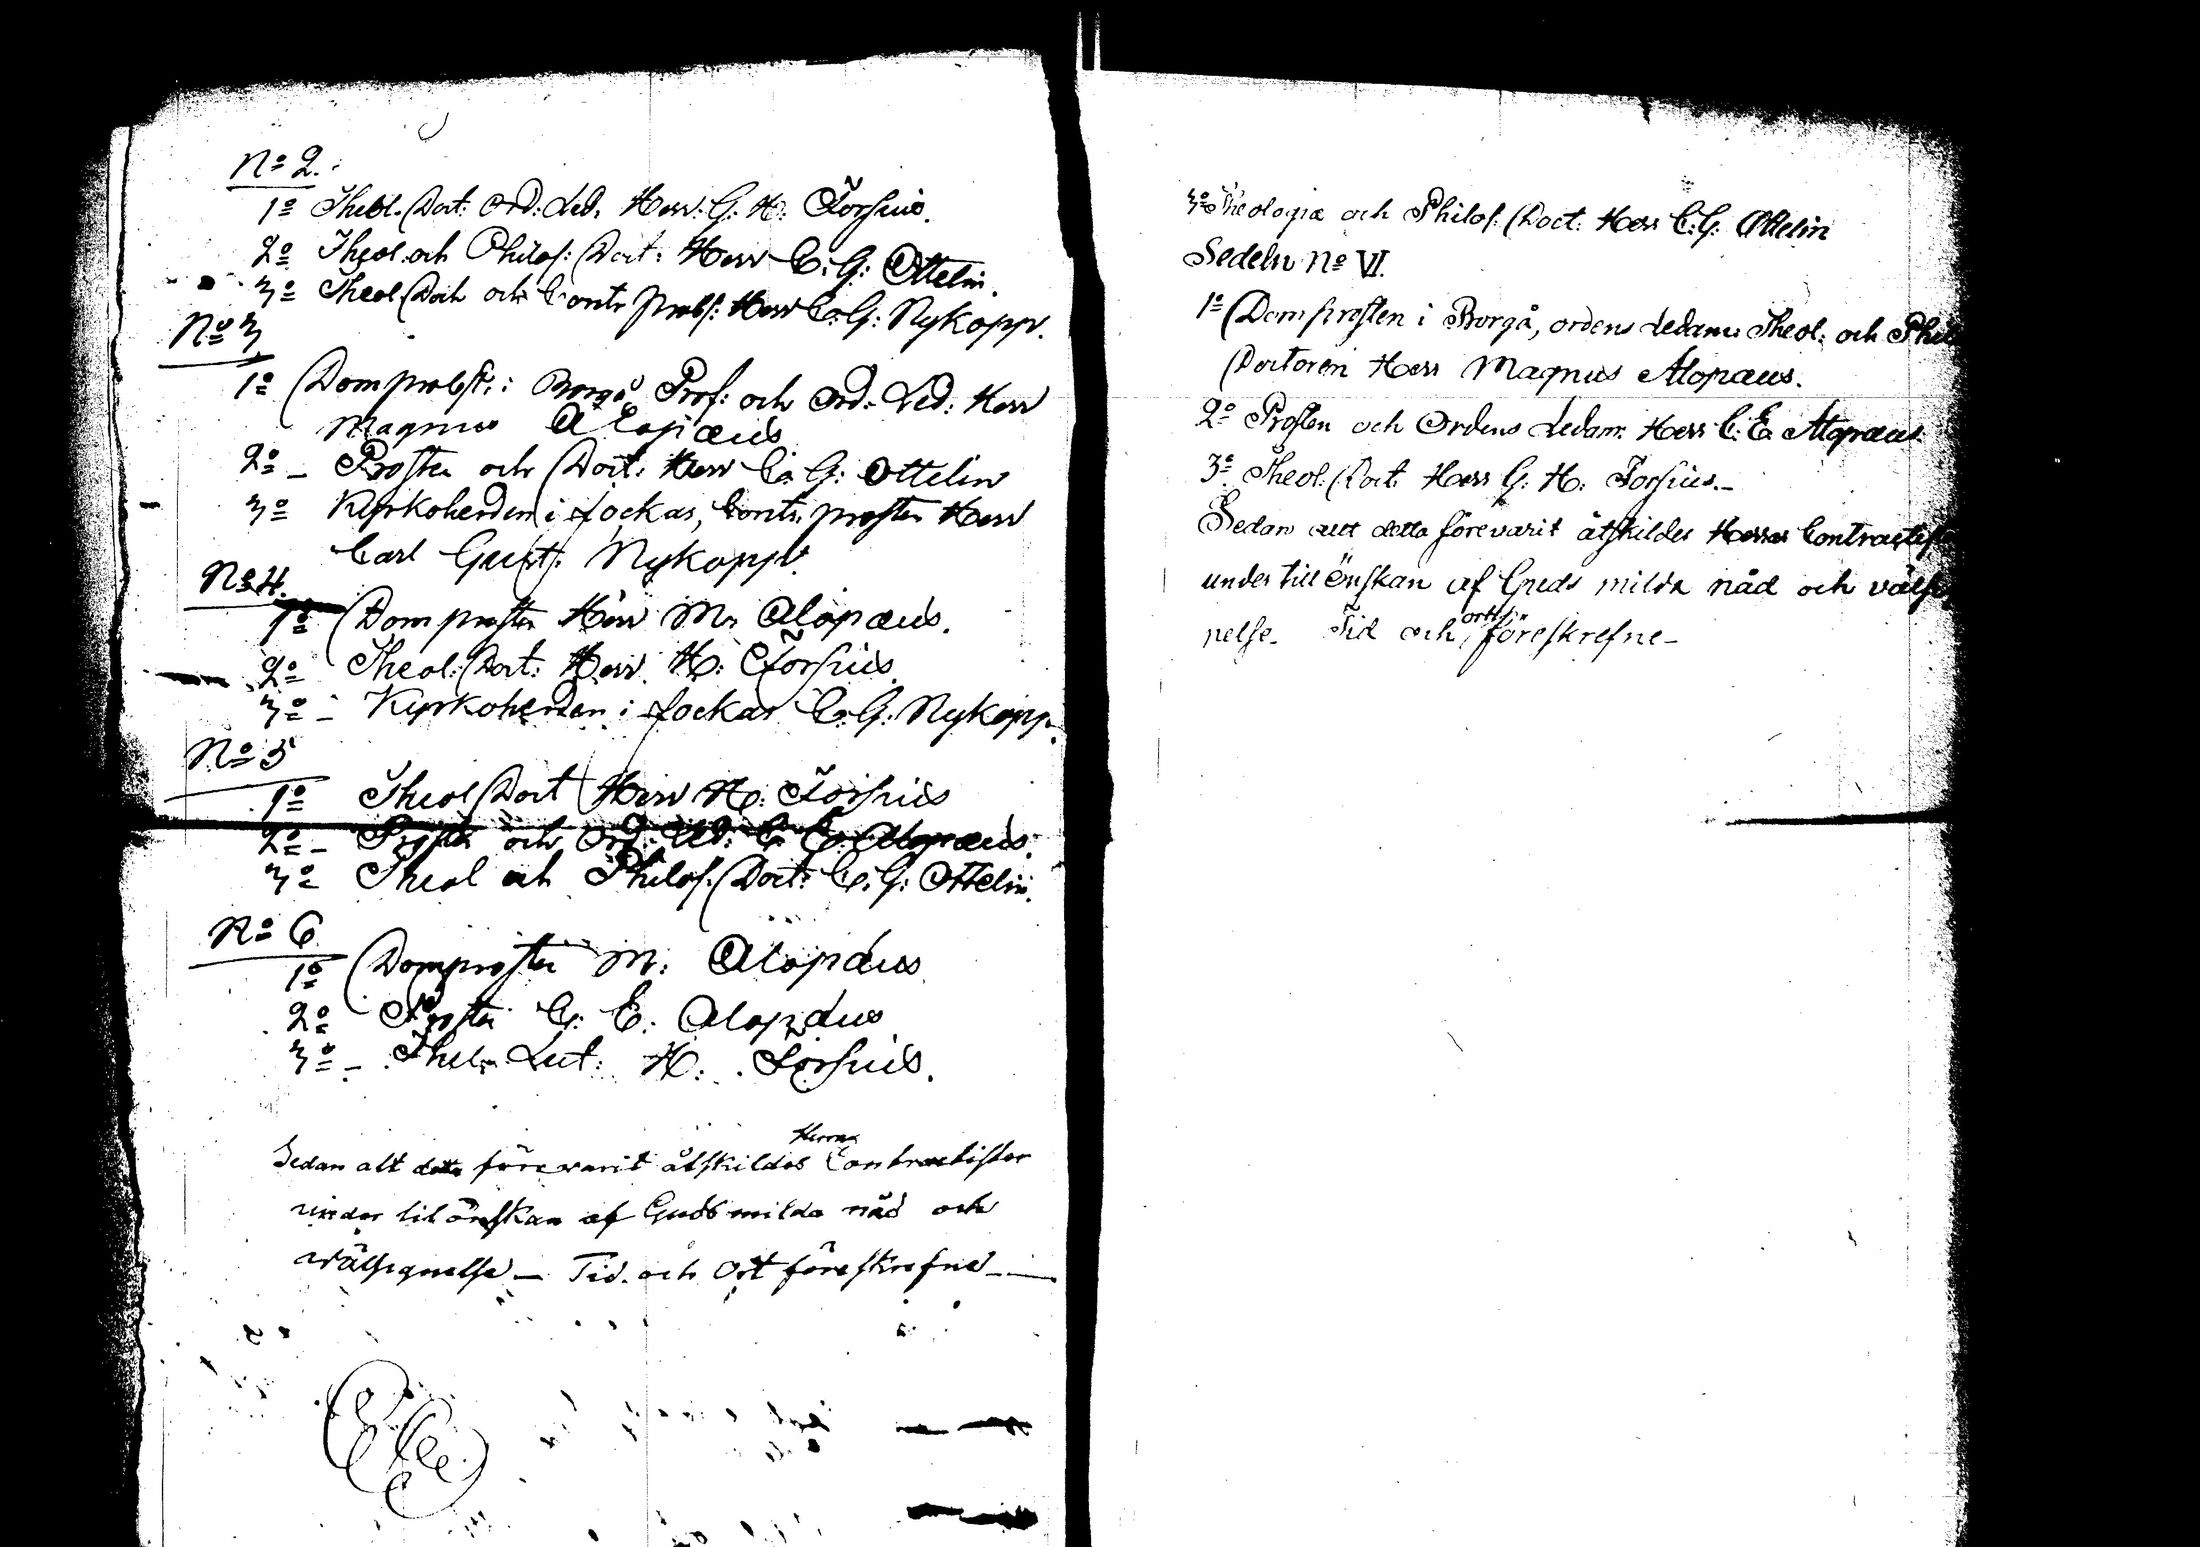 No 2.
1o Theol. Doct: Ord: Led. Herr G. H: Forsius.
2o Theol. och Philos: Doct: Herr C: G: Ottelin.
3o Theol Doct och Contr Probs: Herr C: G: Nykopp.
No 3
1o Domprobst: i Borgå Prof: och Ord: Led: Herr
Magnus Alopæus
2o – Prosten och Doct: Herr C. G: Ottelin
3o Kyrkoherden i Jockas, Contr. prosten Herr
Carl Gust: Nykopp.
No 4.
1o Domprosten Herr M. Alopæus.
2o Theol: Doct: Herr H: Forsius.
3o – Kyrkoherden i Jockas C: G: Nykopp.
No 5
1o Theol Doct Herr H: Forsius
2o – Prosten och Ord: Led: C. E. Alopæus.
3o Theol och Philos. Doct: C. G: Ottelin.
No 6
1o Domprosten M: Alopæus
2o Prosten C: E: Alopæus
3o – H: Forsius.
Sedan alt detta förevarit åtskildes Herrar Contractister
under tilönskan af Guds milda nåd och
wälsignelse – Tid och Ort föreskrefne –
3o Theologiæ och Philos. Doct: Herr C: G: Ottelin
Sedeln No VI.
1o Domprosten i Borgå, ordens Ledam: Theol: och Phil
Doctoren Herr Magnus Alopæus.
2o Prosten och Ordens Ledam: Herr C. E. Alopæus
3o Theol: Doct: Herr G: H: Forsius. –
Sedan alt detta förevarit åtskildes Herrar Contractis
under tillönskan af Guds milda nåd och välsig
nelse. Tid och ort föreskrefne –